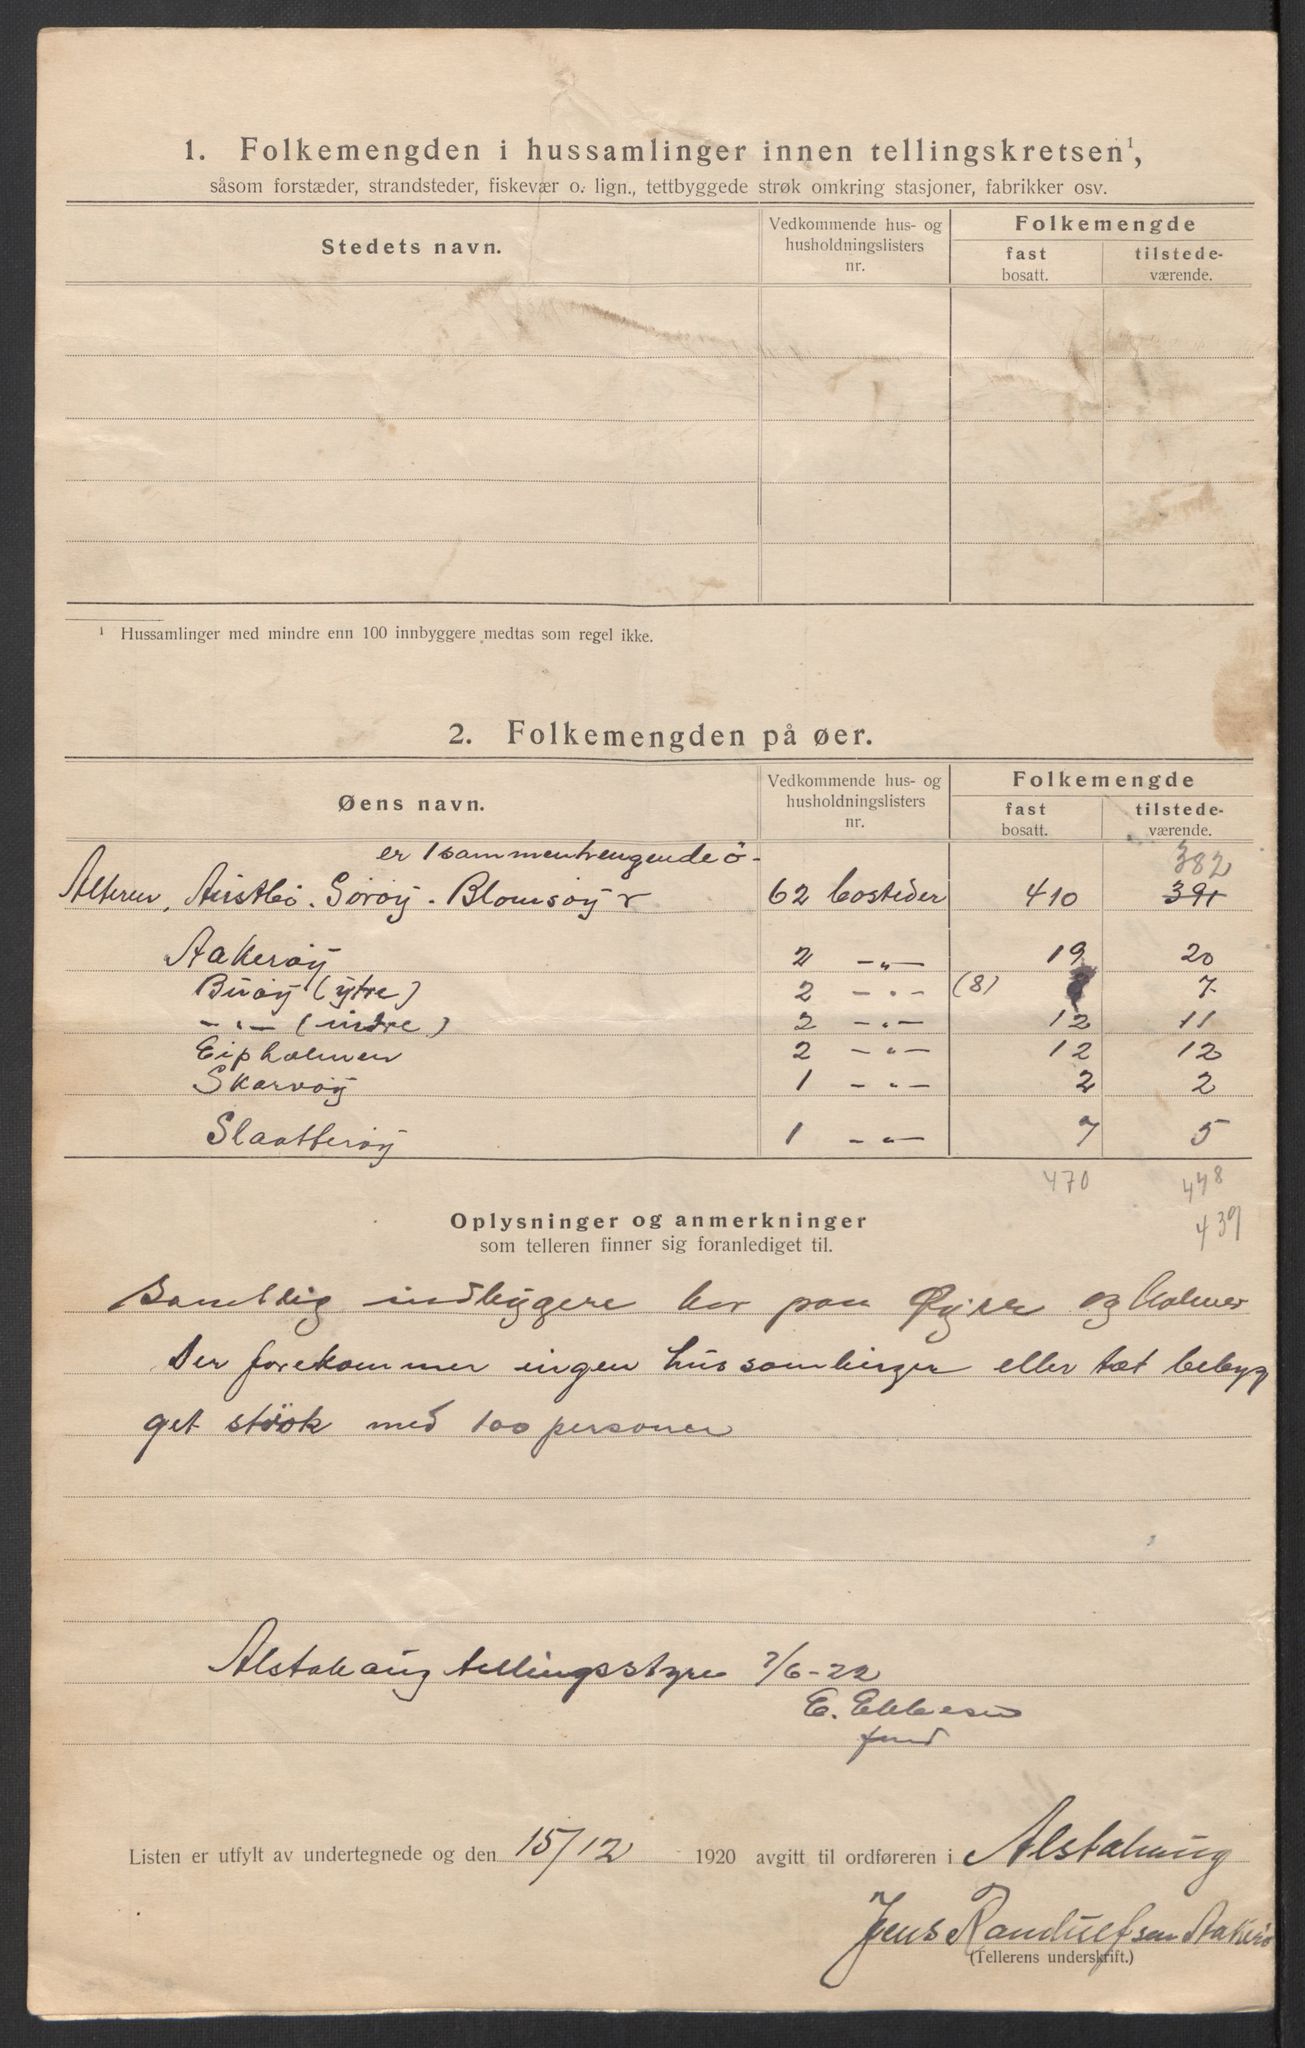 1. Folkemengden i hussamlinger innen tellingskretsen¹,
såsom forstæder, strandsteder, fiskevær o. lign., tettbyggede strøk omkring stasjoner, fabrikker osv.
Stedets navn. Vedkommende hus- og husholdningslisters nr. Folkemengde
fast bosatt. tilstede-værende.
¹ Hussamlinger med mindre enn 100 innbyggere medtas som regel ikke.
2. Folkemengden på øer.
Øens navn. Vedkommende hus- og husholdningslisters nr. Folkemengde
fast bosatt. tilstede-værende.
er 1 sammenhengende ö - 382
Alteren, Austbö. Söröy. Blomsöy 62 bosteder 410 391
Aakeröy 2 -„- 19 20
Buöy (ytre) 2 -„- (8) 7
-„- (indre) 2 -„- 12 11
Eipholmen 2 -„- 12 12
Skarvöy 1 -„- 2 2
Slaatteröy 1 -„- 7 5
470 448
439
Oplysninger og anmerkninger
som telleren finner sig foranlediget til.
Samtlig indbyggere bor paa Øyer og holmer
Der forekommer ingen hussamlinger eller tæt bebyg
get strök med 100 personer
Alstahaug tellingsstyre 7/6-22
E. Ebbesen
fmd
Listen er utfylt av undertegnede og den 15/12 1920 avgitt til ordføreren i Alstahaug
Jens Randulfsen Aakerö
(Tellerens underskrift.)